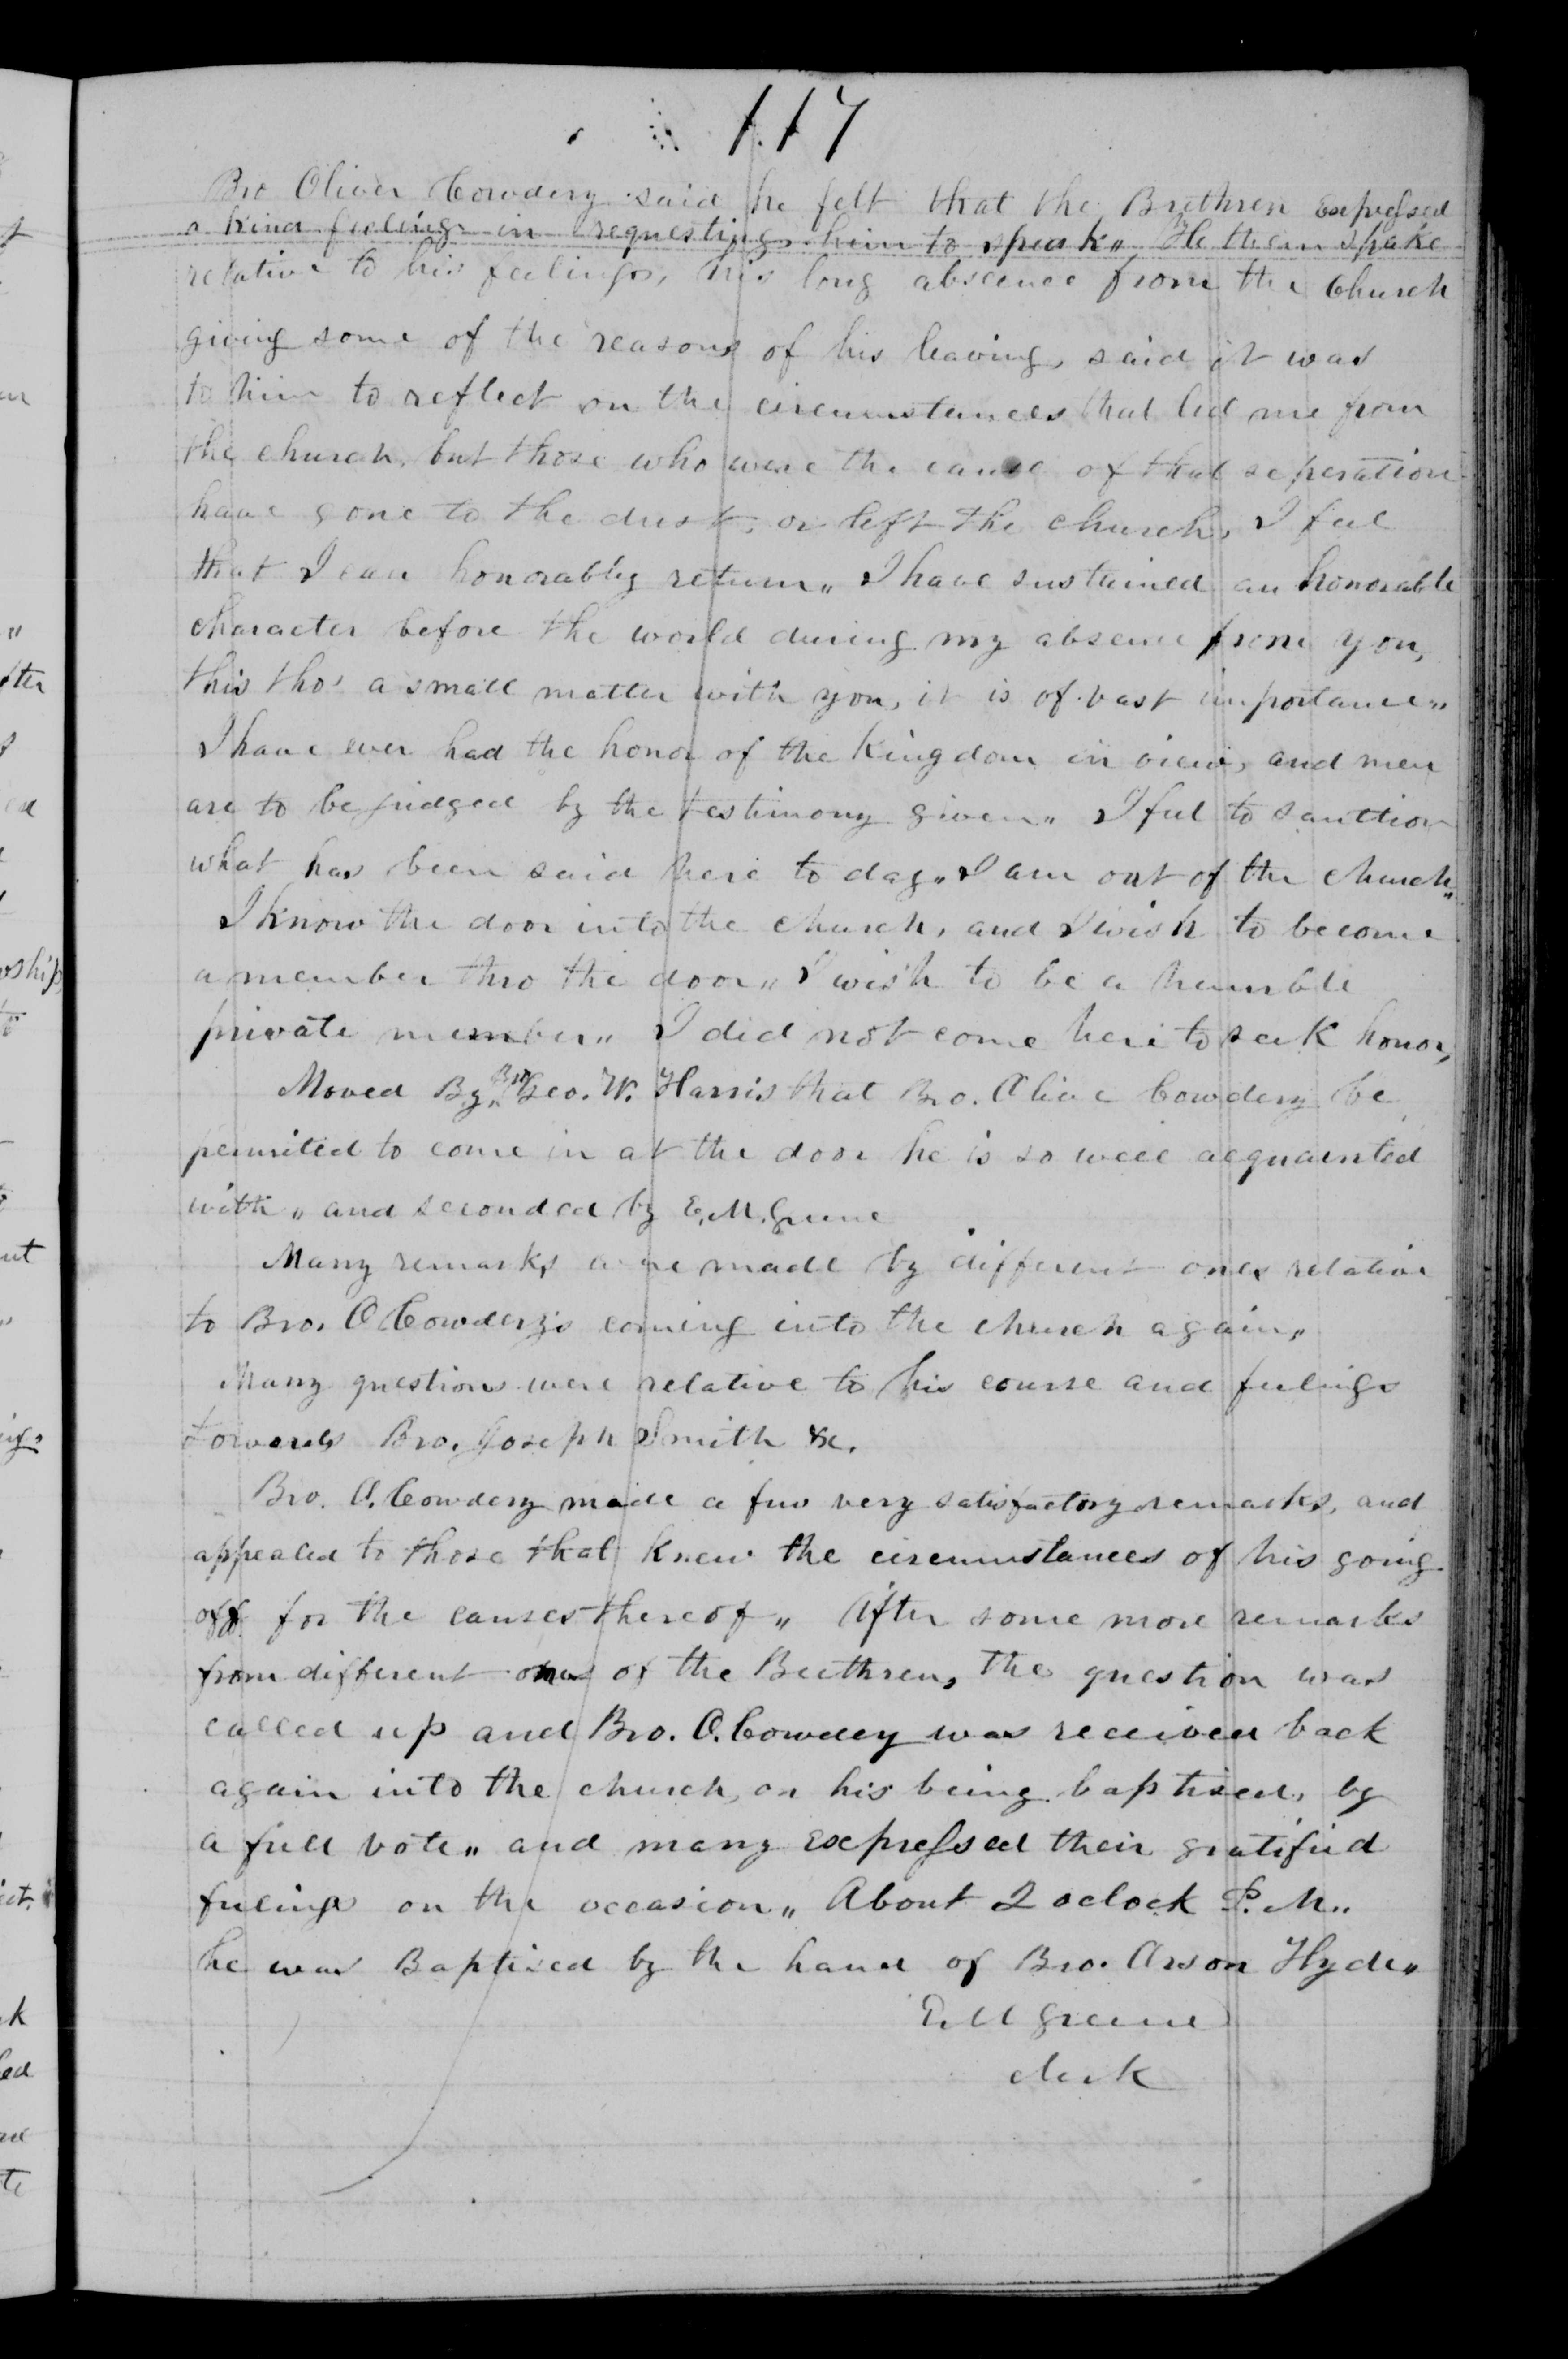 117
Bro Oliver Cowdery said he felt that the Brethren Expressed
a kind feeling in requesting him to speak„ He then spake
relative to his feelings, his long absence from the Church
giving some of the reasons of his leaving, said it was
to him to reflect on the circumstances that led me from
the church, but those who were the cause of that seperation
have gone to the dust, or left the church, I feel
that I can honorably return„ I have sustained an honorable
character before the world during my absence from you,
this tho' a small matter with you, it is of vast importance„
I have ever had the honor of the Kingdom in view, and men
are to be judged by the testimony given„ I feel to sanction
what has been said here to day„ I am out of the church„
I know the door into the church, and I wish to become
a member thro the door„ I wish to be a humble
private member„ I did not come here to seek honor,
Moved By Bro Geo. W. Harris that Bro. Olive Cowdery be
permited to come in at the door he is so well acquainted
with„ and seconded by E. M. Greene
Many remarks were made by different ones relative
to Bro. O Cowdery's coming into the church again„
Many questions were relative to his course and feelings
towards Bro. Joseph Smith &c.
Bro. O. Cowdery made a few very satisfactory remarks, and
appealed to those that knew the circumstances of his going
off for the causes thereof„ After some more remarks
from different ones of the Brethren, the question was
called up and Bro. O. Cowdey was received back
again into the church, on his being baptised, by
a full vote„ and many Expressed their gratified
feelings on the occasion„ About 2 oclock P. M„
he was Baptised by the hand of Bro. Orson Hyde„
E. M Greene
clerk